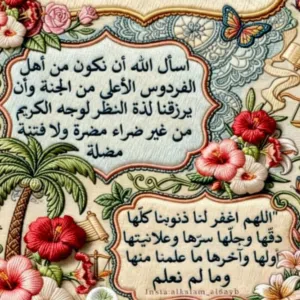 أسأل الله أن نكون من أهل
الفردوس الأعلى من الجنة وأن
يرزقنا لذة النظر لوجه الكريم
من غير ضراء مضرة ولا فتنة
مضلة
"اللهم اغفر لنا ذنوبنا كلها
دقها وجلها سرها وعلانيتها
أولها وآخرها ما علمنا منها
وما لم نعلم